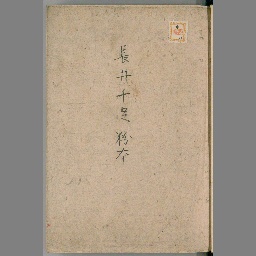 長井十足粉本